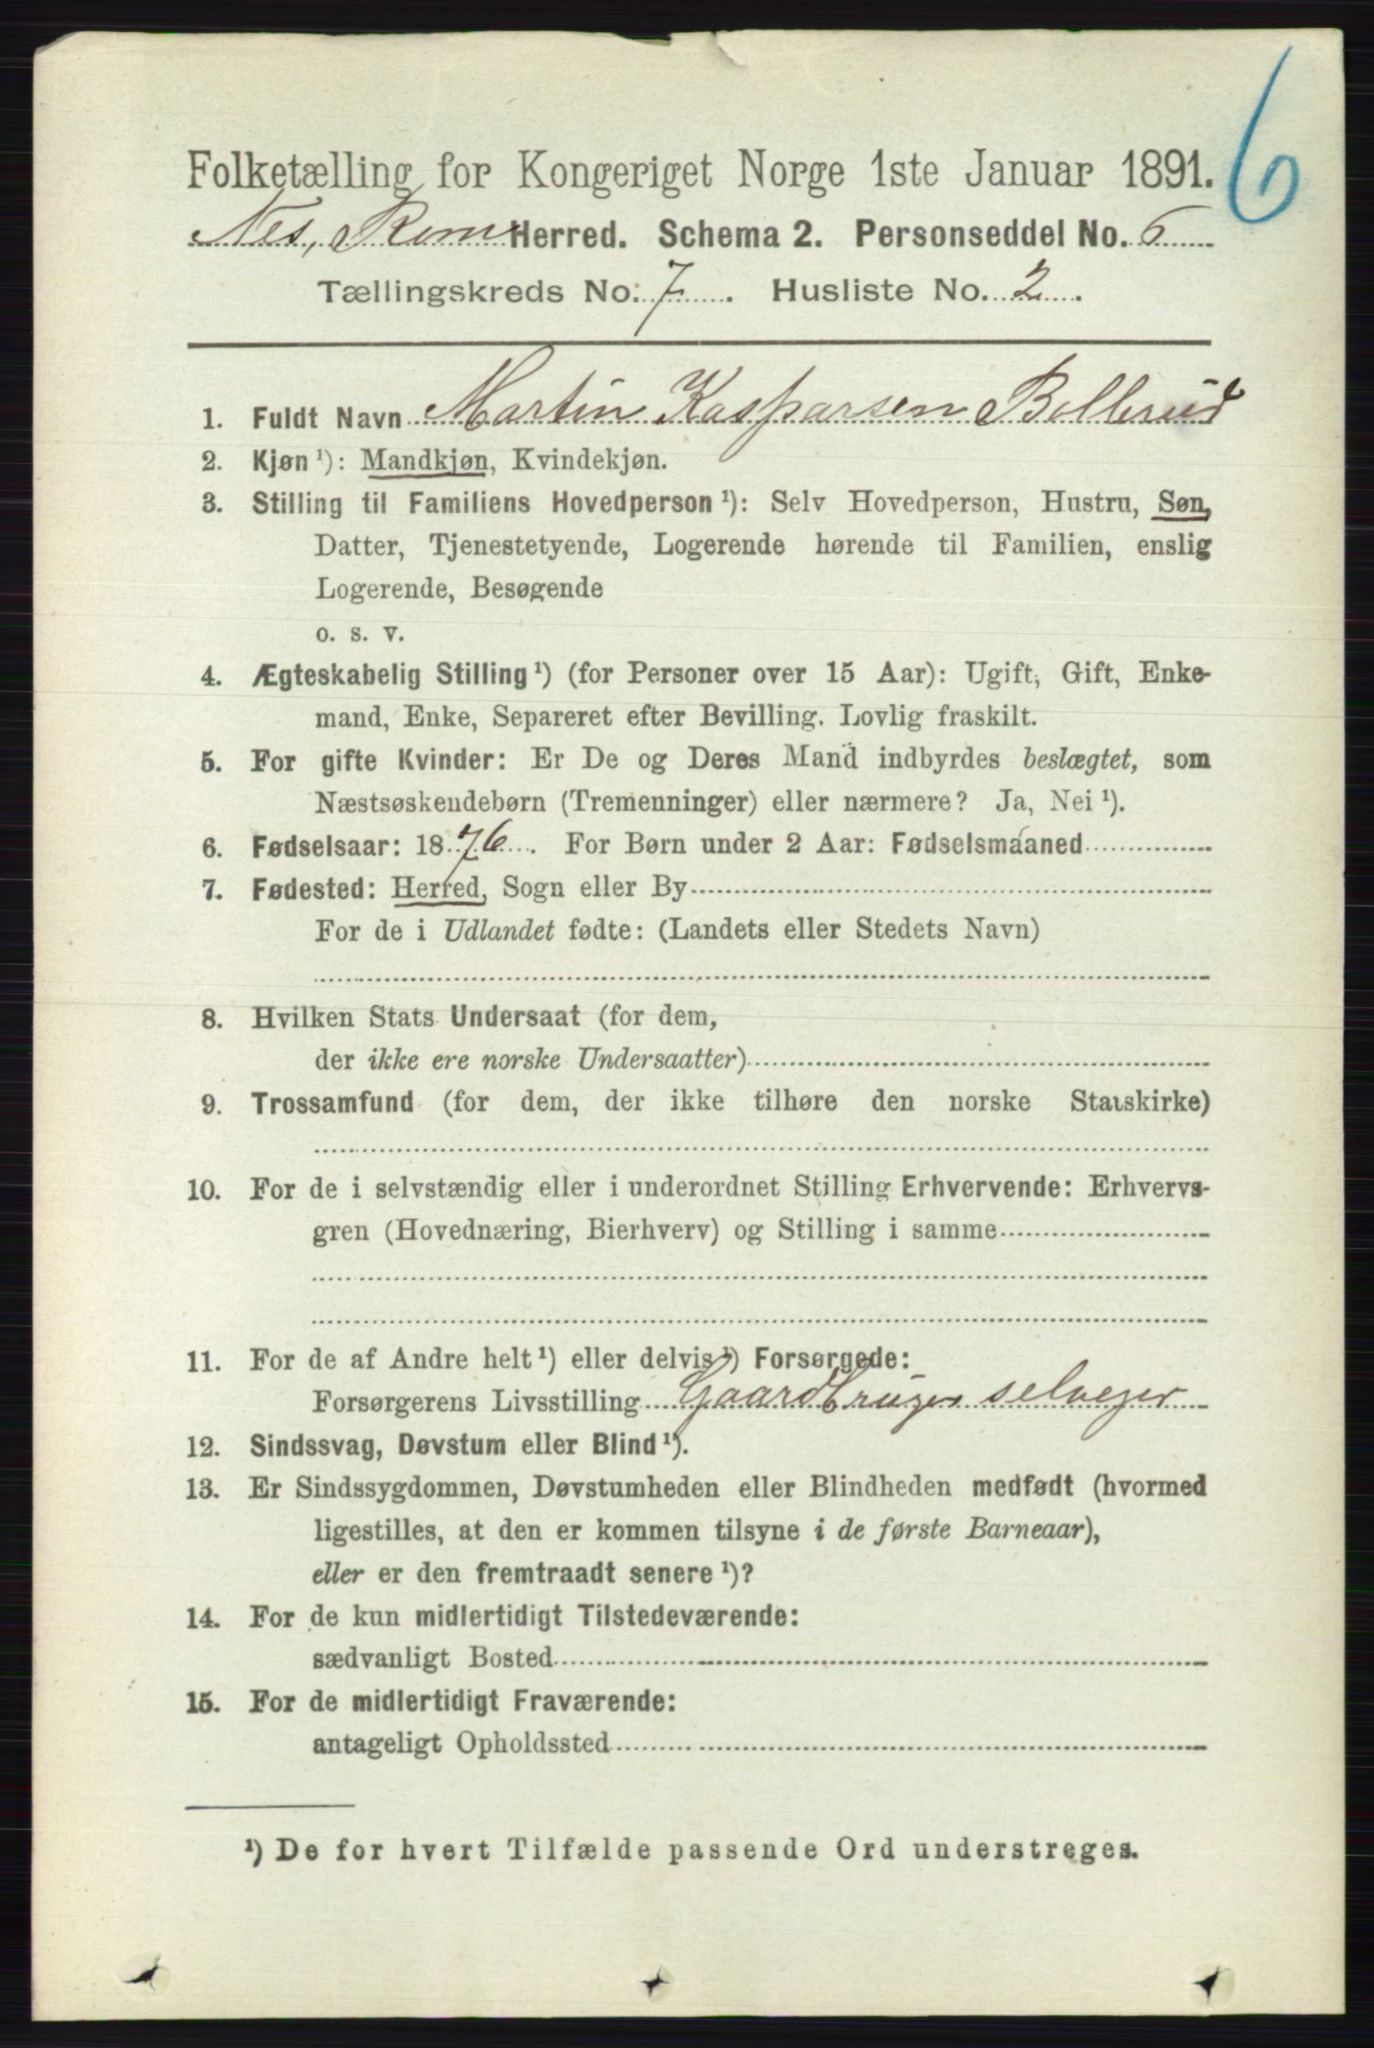 6
Folketælling for Kongeriget Norge 1ste Januar 1891.
Nes, Rom. Herred. Schema 2. Personseddel No. 6
Tællingskreds No. 7. Husliste No. 2.
1. Fuldt Navn Martin Kasparsen Bollerud
2. Kjøn ¹): Mandkjøn, Kvindekjøn.
3. Stilling til Familiens Hovedperson ¹): Selv Hovedperson, Hustru, Søn,
Datter, Tjenestetyende, Logerende hørende til Familien, enslig
Logerende, Besøgende
o. s. v.
4. Ægteskabelig Stilling ¹) (for Personer over 15 Aar): Ugift, Gift, Enke-
mand, Enke, Separeret efter Bevilling. Lovlig fraskilt.
5. For gifte Kvinder: Er De og Deres Mand indbyrdes beslægtet, som
Næstsøskendebørn (Tremenninger) eller nærmere? Ja, Nei ¹).
6. Fødselsaar: 1876. For Børn under 2 Aar: Fødselsmaaned
7. Fødested: Herred, Sogn eller By
For de i Udlandet fødte: (Landets eller Stedets Navn)
8. Hvilken Stats Undersaat (for dem,
der ikke ere norske Undersaatter)
9. Trossamfund (for dem, der ikke tilhøre den norske Statskirke)
10. For de i selvstændig eller i underordnet Stilling Erhvervende: Erhvervs-
gren (Hovednæring, Bierhverv) og Stilling i samme
11. For de af Andre helt ¹) eller delvis ¹) Forsørgede:
Forsørgerens Livsstilling Gaardbruger selveger
12. Sindssvag, Døvstum eller Blind ¹).
13. Er Sindssygdommen, Døvstumheden eller Blindheden medfødt (hvormed
ligestilles, at den er kommen tilsyne i de første Barneaar),
eller er den fremtraadt senere ¹)?
14. For de kun midlertidigt Tilstedeværende:
sædvanligt Bosted
15. For de midlertidigt Fraværende:
antageligt Opholdssted
¹) De for hvert Tilfælde passende Ord understreges.